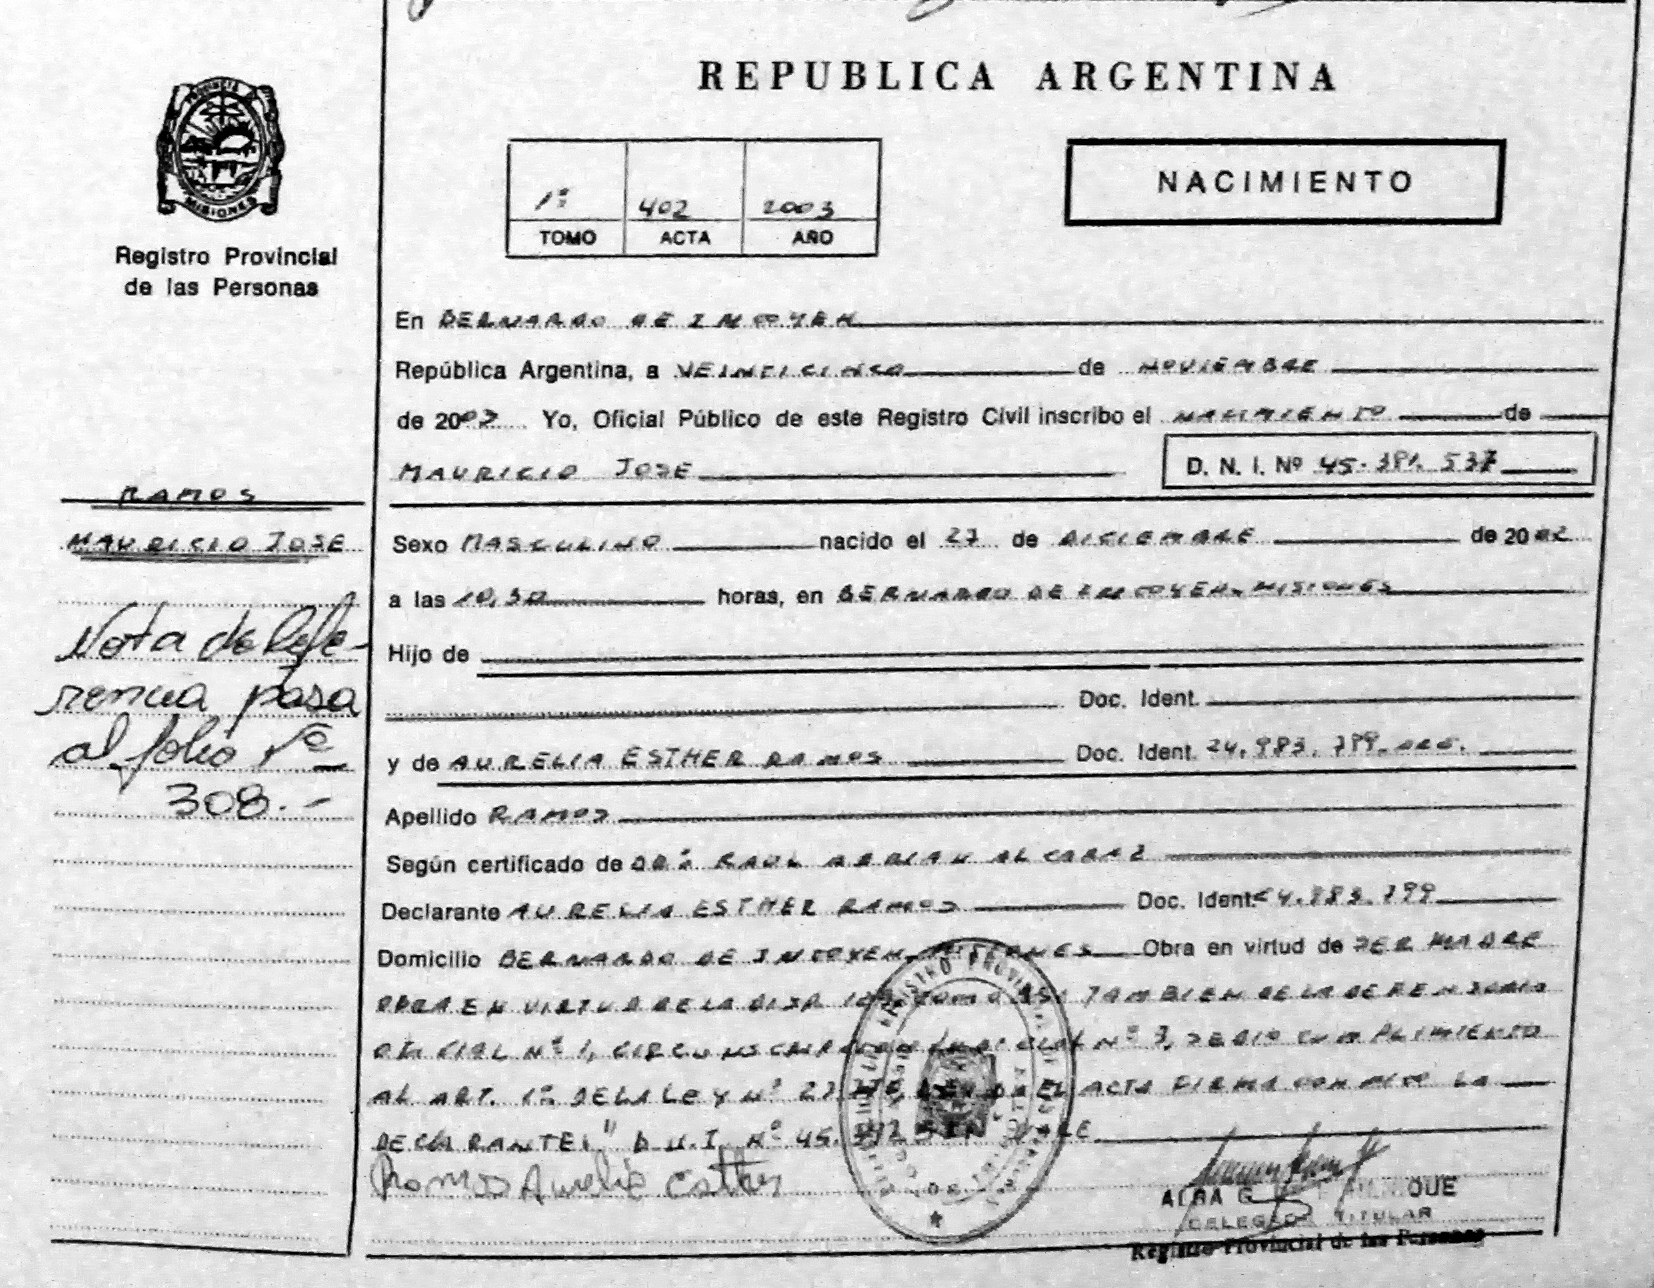 REPUBLICA ARGENTINA
PROVINCIA DE
MISIONES
Registro Provincial
de las Personas
1º 402 2003
TOMO ACTA AÑO
NACIMIENTO
En BERNARDO DE IRIGOYEN
República Argentina, a VEINTICINCO de NOVIEMBRE
de 2003 Yo, Oficial Público de este Registro Civil inscribo el NACIMIENTO de
MAURICIO JOSE D. N. I. Nº 45.381.537
RAMOS
MAURICIO JOSE
Nota de Refe-
rencia pasa
al folio 1º
308.-
Sexo MASCULINO nacido el 27 de DICIEMBRE de 2002
a las 10,30 horas, en BERNARDO DE IRIGOYEN, MISIONES
Hijo de
Doc. Ident.
y de AURELIA ESTHER RAMOS Doc. Ident. 24.983.799.
Apellido RAMOS
Según certificado de DR. RAUL ADRIAN ALCARAZ
Declarante AURELIA ESTHER RAMOS Doc. Ident. 24.983.799
Domicilio BERNARDO DE IRIGOYEN, MISIONES Obra en virtud de SER MADRE
OBRA EN VIRTUD DE LA DISP. COMO ASI TAMBIEN DE LA DEFENSORIA
OFICIAL Nº 1, CIRCUNSCRIPCION JUDICIAL Nº 3, SE DIO CUMPLIMIENTO
AL ART. 1º DE LA LEY Nº EL ACTA FIRMA CONMIGO LA
DECLARANTE. D.N.I. Nº 45. VALE
Ramos Aurelia Esther
ALBA G.
DELEGADA TITULAR
Registro Provincial de las Personas